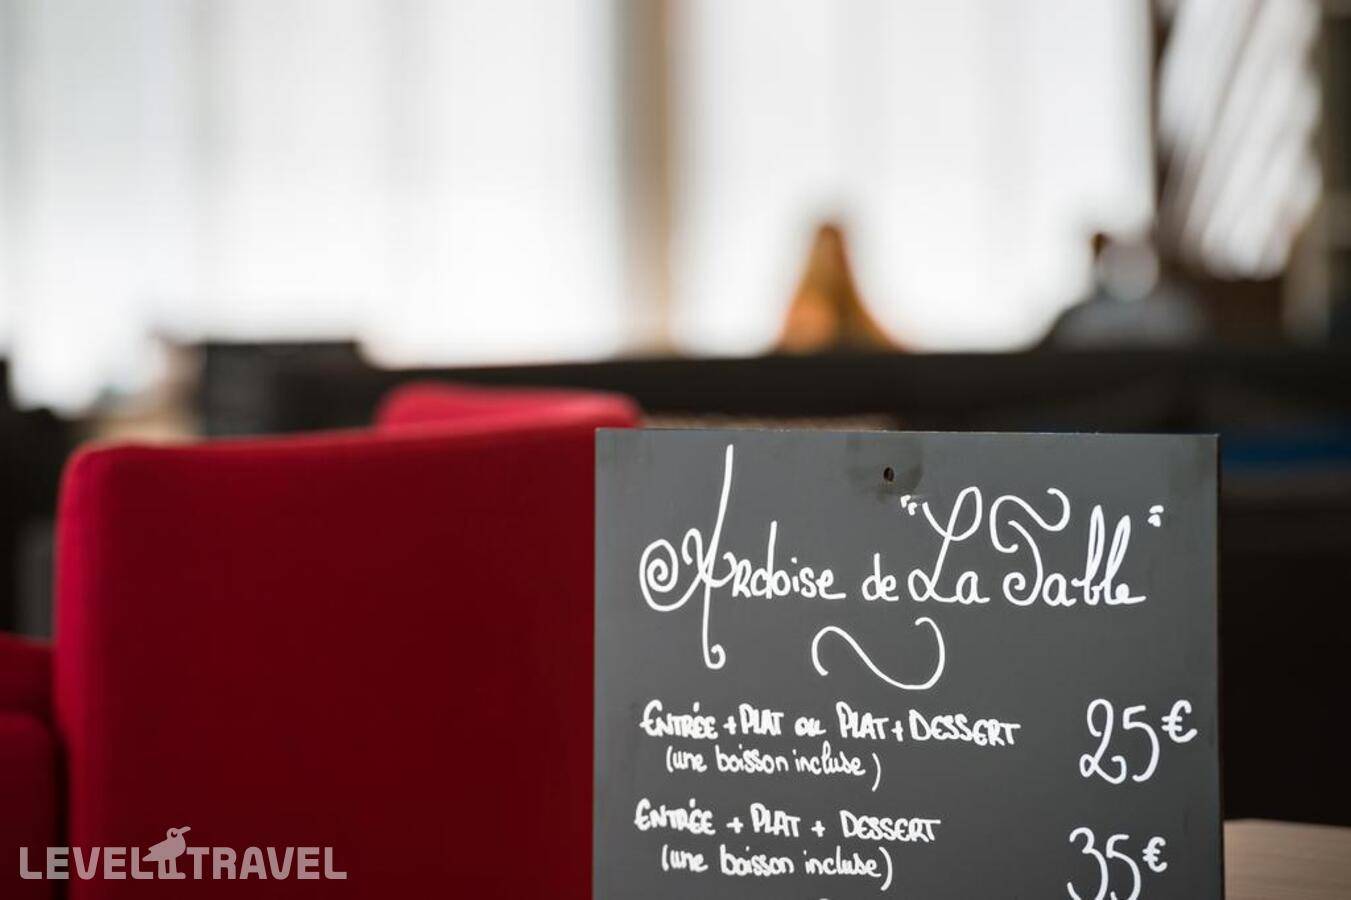 Ardoise de "La Table"
ENTRÉE + PLAT ou PLAT + DESSERT 25€
(une boisson incluse)
ENTRÉE + PLAT + DESSERT 35€
(une boisson incluse)
LEVEL TRAVEL